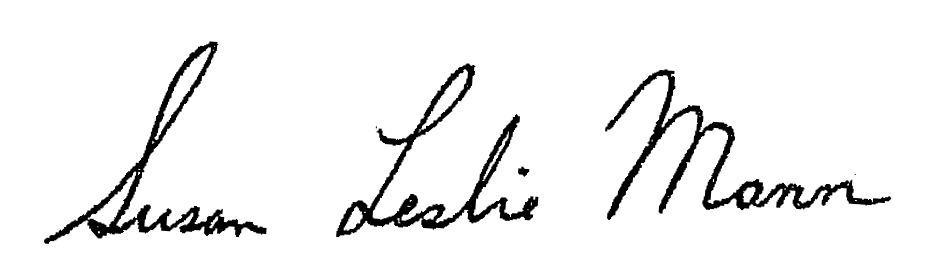 Susan Leslie Mann